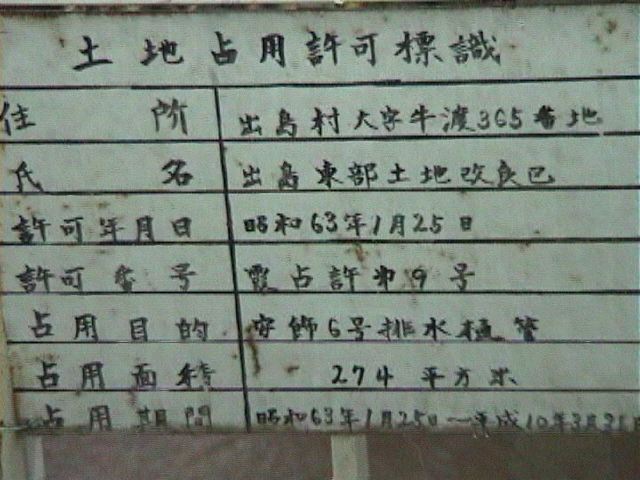 土地占用許可標識
住所 出島村大字牛渡365番地
氏名 出島東部土地改良区
許可年月日 昭和63年1月25日
許可番号 霞占許第9号
占用目的 安飾6号排水樋管
占用面積 274平方米
占用期間 昭和63年1月25日〜平成10年3月31日